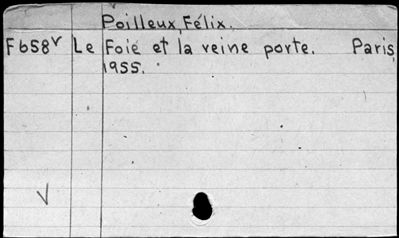 Poilleux, Félix.
F658v Le Foié et la veine porte. Paris,
1955.